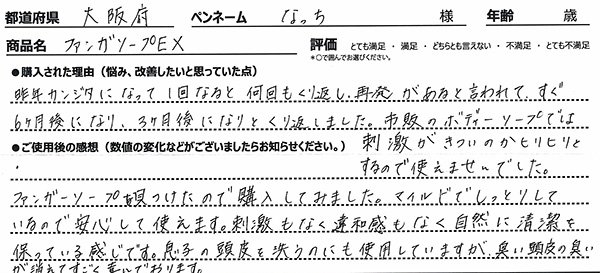 都道府県 大阪府 ペンネーム なっち 様 年齢 歳
商品名 ファンガソープEX 評価 とても満足 ・ 満足 ・ どちらとも言えない ・ 不満足 ・ とても不満足
*○で囲んでお選びください。
●購入された理由（悩み、改善したいと思っていた点）
昨年カンジタになって1回なると何回もくり返し再発があると言われて、すぐ
6ヶ月後になり、3ヶ月後になりとくり返しました。市販のボディーソープでは
刺激がきついのかヒリヒリと
するので使えませんでした。
●ご使用後の感想（数値の変化などがございましたらお知らせください。）
ファンガーソープ見つけたので購入してみました。マイルドでしっとりして
いるので安心して使えます。刺激もなく違和感もなく自然に清潔を
保っている感じです。息子の頭皮を洗うのにも使用していますが、臭い頭皮の臭い
が消えてすごく喜んでおります。